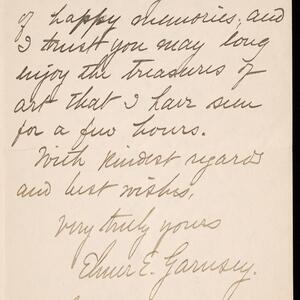 of happy memories, and
I trust you may long
enjoy the treasures of
art that I have seen
for a few hours.
With kindest regards
and best wishes,
very truly yours
Elmer E. Garnsey.